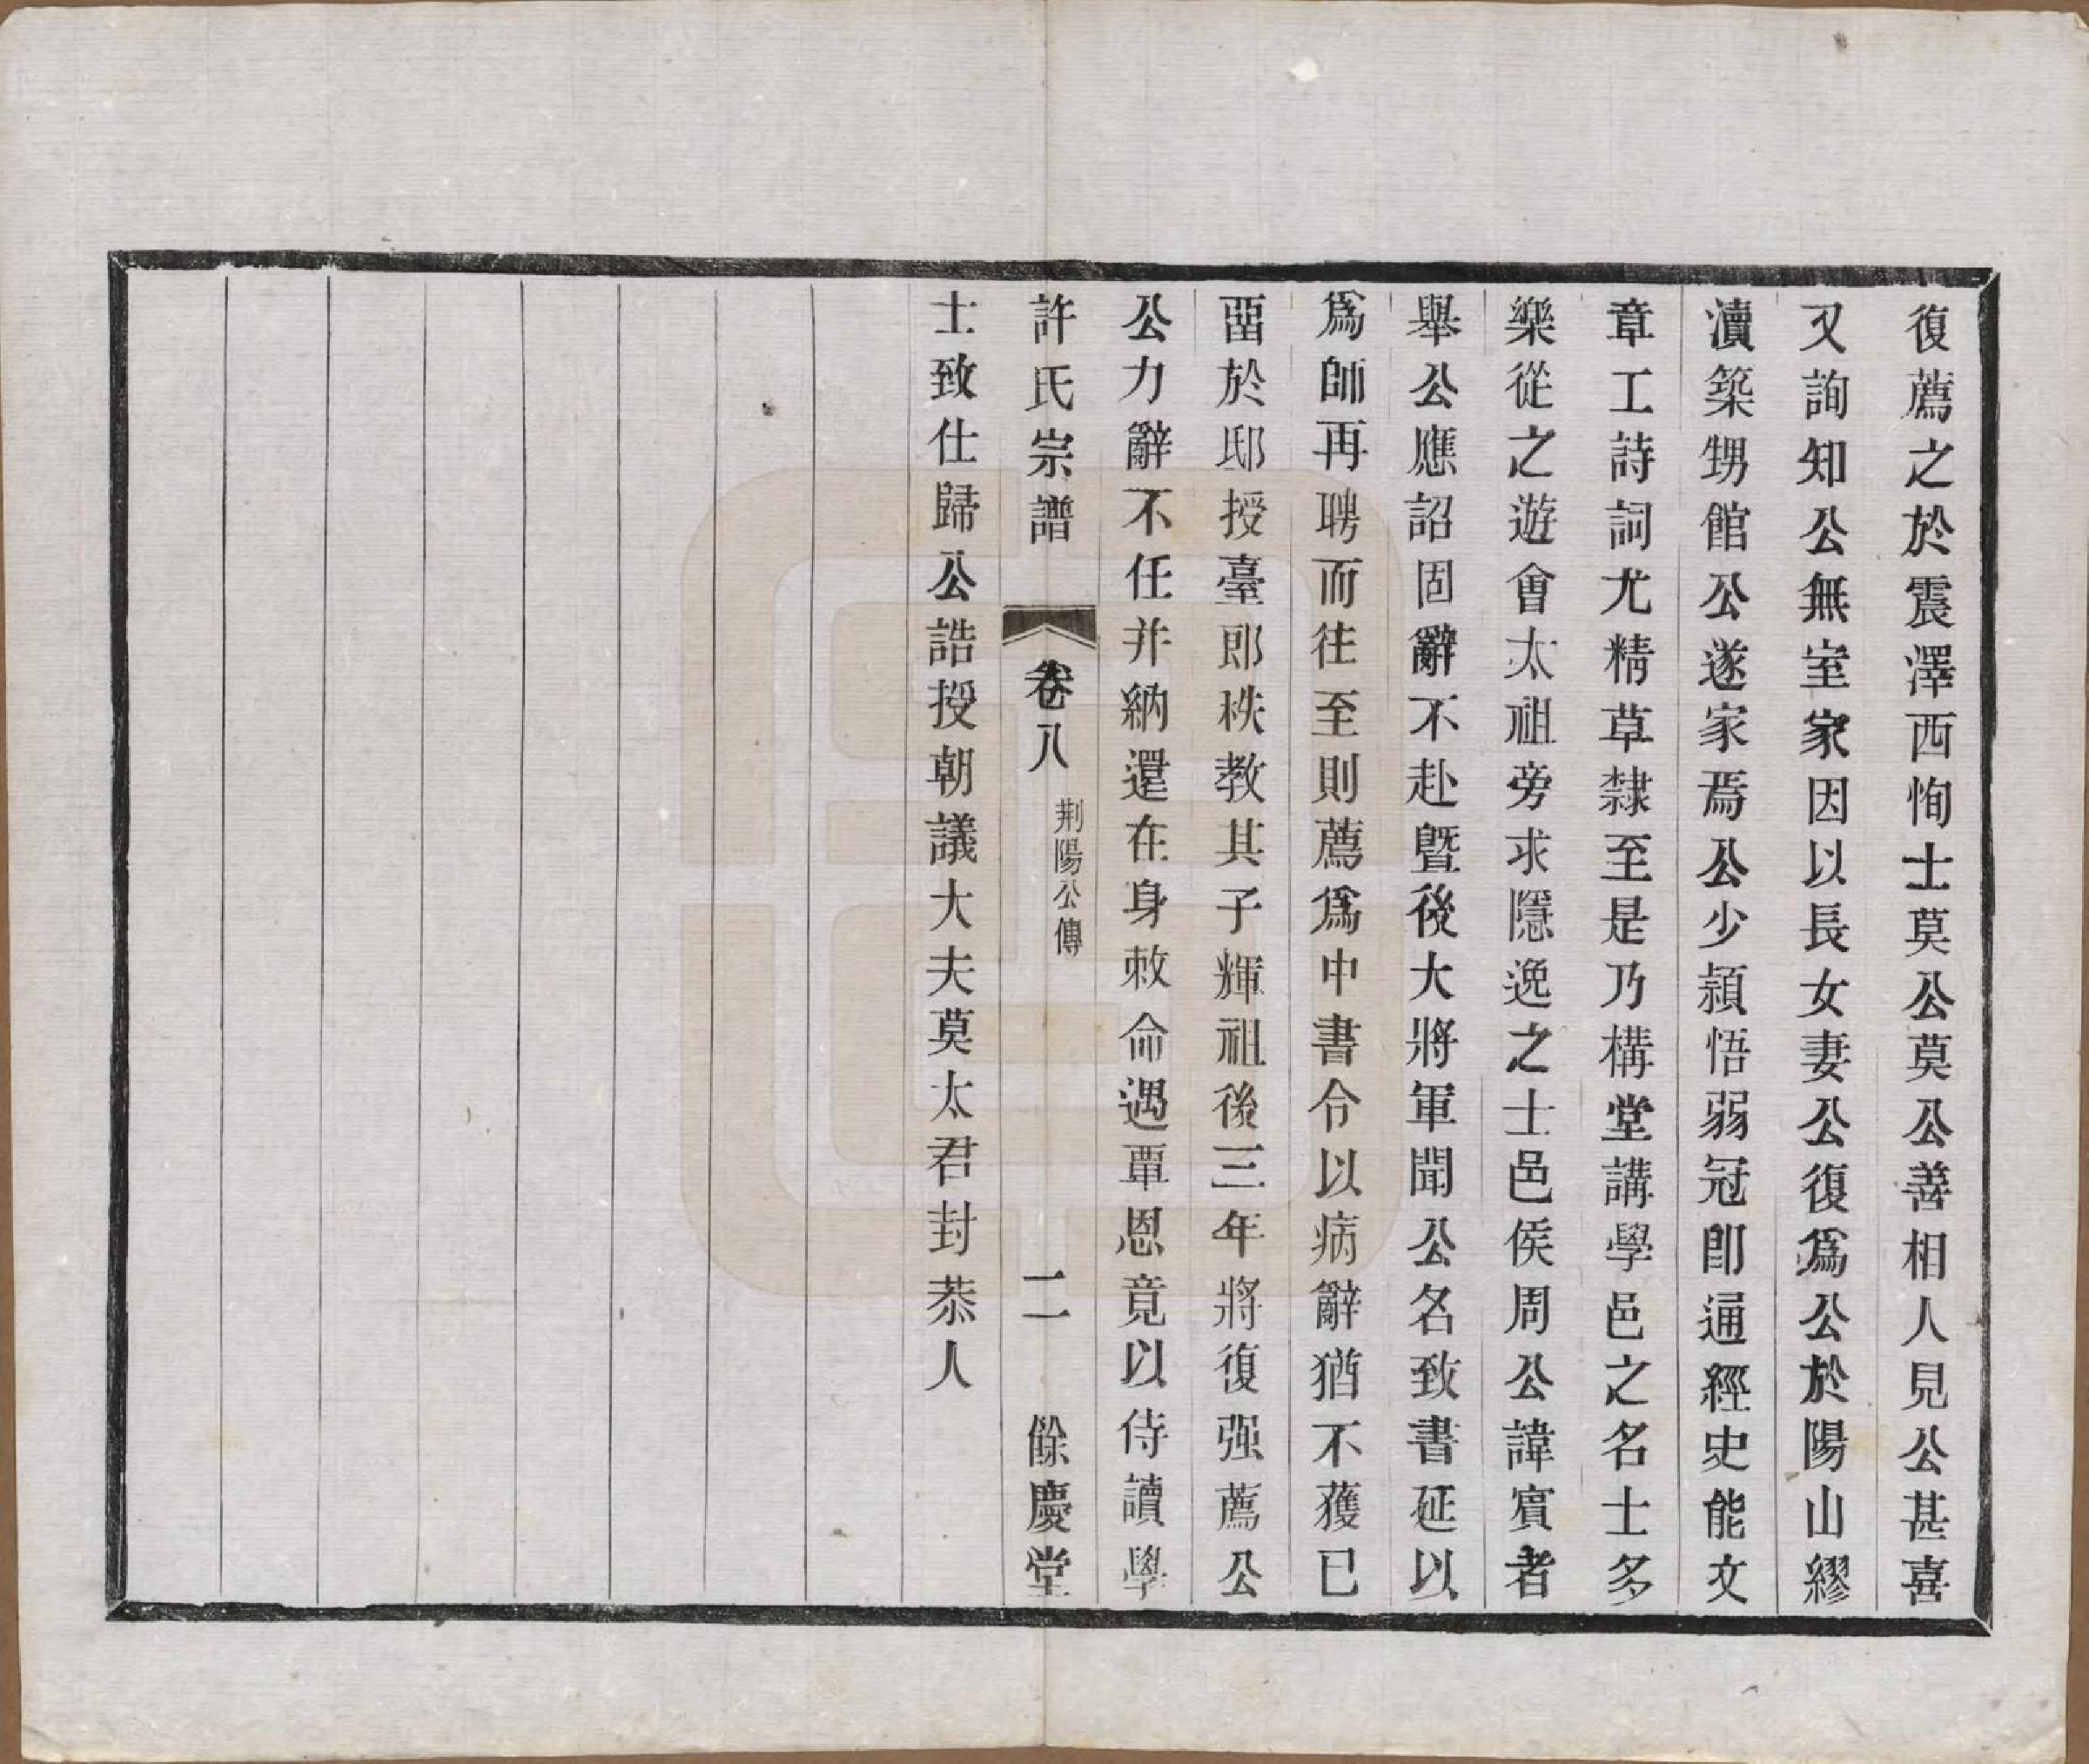 復薦之於震澤西恂士莫公莫公善相人見公甚喜
又詢知公無室家因以長女妻公復爲公於陽山繆
瀆築甥館公遂家焉公少頴悟弱冠即通經史能文
章工詩詞尤精草隸至是乃構堂講學邑之名士多
樂從之遊會太祖旁求隱逸之士邑侯周公諱賓者
舉公應詔固辭不赴曁後大將軍聞公名致書延以
爲師再聘而往至則薦爲中書令以病辭猶不獲已
畱於邸授臺郎秩教其子輝祖後三年將復强薦公
公力辭不任并納還在身敕命遇覃恩竟以侍讀學
許氏宗譜 卷八 荆陽公傳 二 餘慶堂
士致仕歸公誥授朝議大夫莫太君封恭人